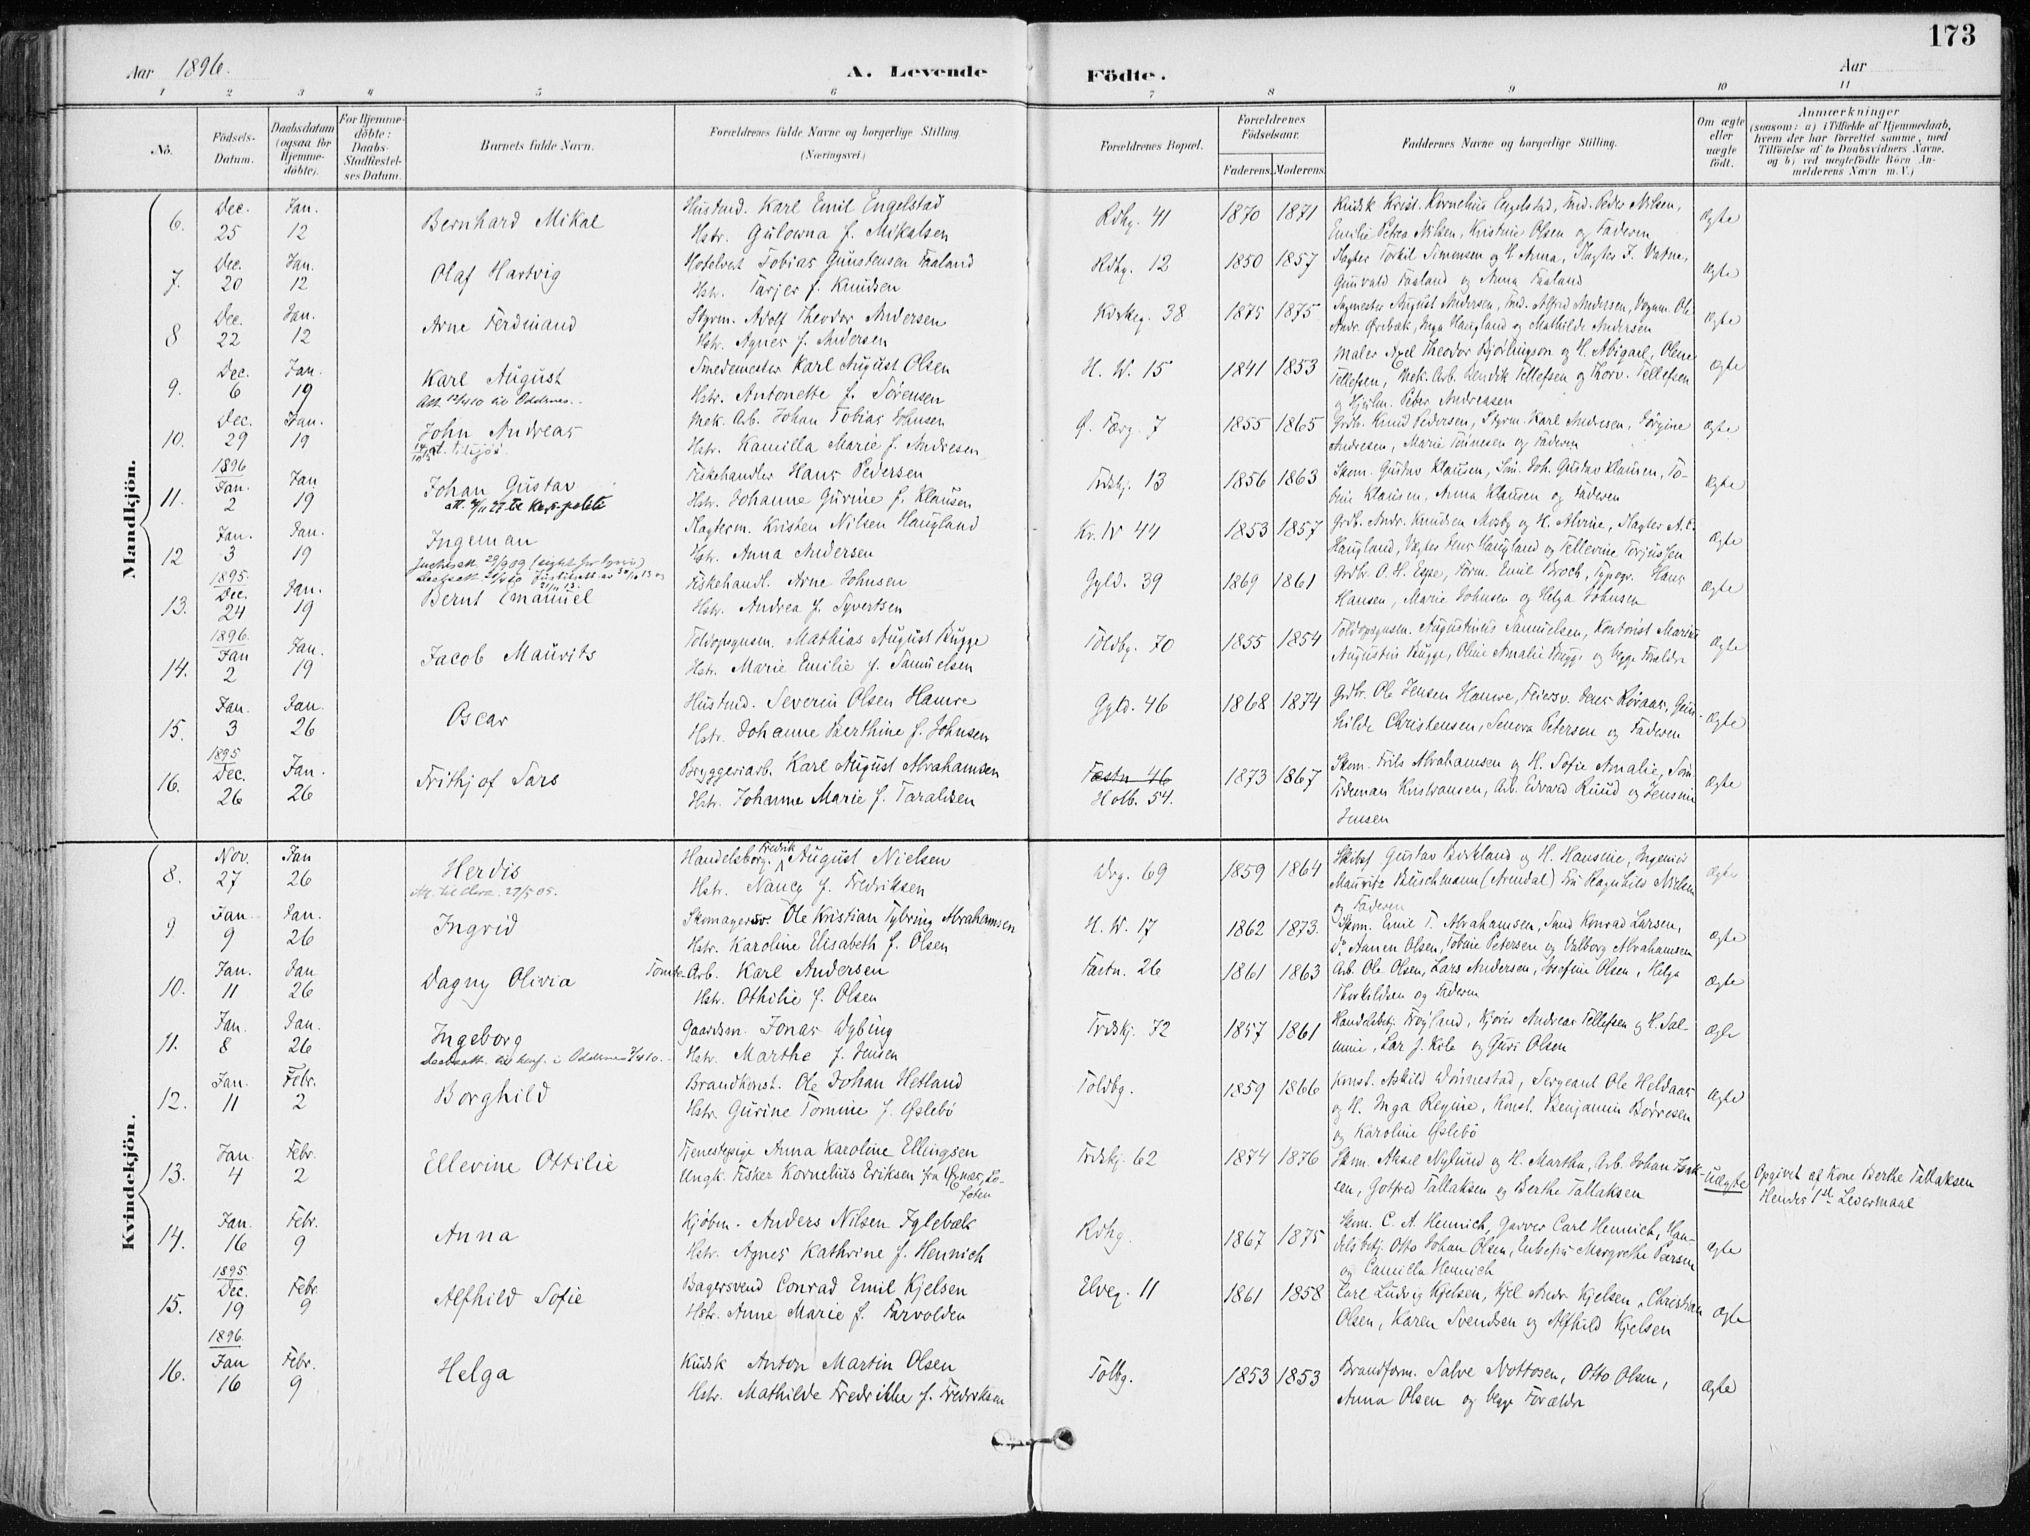 173
Aar 1896.
A. Levende Födte.
Aar
1 2 3 4 5 6 7 8 9 10 11
Nö.
Födsels-Datum.
Daabsdatum (ogsaa for Hjemme-döbte).
For Hjemme-döbte: Daabs-Stadfæstel-ses Datum.
Barnets fulde Navn.
Forældrenes fulde Navne og borgerlige Stilling (Næringsvei.)
Forældrenes Bopæl.
Forældrenes Födselsaar.
Faderens. Moderens.
Faddernes Navne og borgerlige Stilling.
Om ægte eller uægte födt.
Anmærkninger
(saasom: a) i Tilfælde af Hjemmedaab, hvem der har forrettet samme, med Tilföielse af to Daabsvidners Navne, og b) ved uægtefödte Börn An-melderens Navn m. V.)
Mandkjön.
6. Dec. 25 Jan. 12 Bernhard Mikal Husmd. Karl Emil Engelstad
Hstr. Gulowna f. Mikalsen Rdhg. 41 1870 1871 Kudsk Krist. Kornelius Engelstad, Peder Nilsen,
Emilie Petrea Nilsen, Kristine Olsen og Faderen Ægte
7. Dec. 20 Jan. 12 Olaf Hartvig Hotelvert Tobias Gunstensen Faaland
Hstr. Tarjer f. Knudsen Rdhg. 12 1850 1857 Slagter Torkil Simonsen og H. Anna, Slagter J. Vatne,
Gunvald Faaland og Anna Faaland Ægte
8 Dec. 22 Jan. 12 Arne Ferdinand Styrm. Adolf Theodor Andersen
Hstr. Agnes f. Andersen 38 1875 1875 August Andersen, Alfred Andersen, Ole
Andr. Inga Haugland og Mathilde Andersen Ægte
9. Dec. 6 Jan. 19 Karl August
Att. 12/4 10 til Oddernes.
Smedemester Karl August Olsen
Hstr. Antonette f. Sørensen H. W. 15 1841 1853 Maler Axel Theodor Bjørlingson og H. Abigael, Olene
Tellefsen, Mek. Arb. Bendik Tellefsen og Thorv. Tellefsen
og Peter Andreasen Ægte
10. Dec. 29 Jan. 19 John Andreas
Mek. Arb. Johan Tobias Johnsen
Hstr. Kamilla Marie f. Andresen Ø. 7 1855 1865 Grdb. Knud Pedersen, Styrm. Karl Andresen, Jørgine
Andresen, Marie Tønnesen og Faderen Ægte
11. 1896 Jan. 2 Jan 19 Johan Gustav
Fiskehandler Hans Pedersen
Hstr. Johanne Gurine f. Klausen 13 1856 1863 Skom. Gustav Klausen, Joh. Gustav Klausen, To-
bine Klausen, Anna Klausen og Faderen Ægte
12 Jan. 3 Jan. 19 Ingeman
Slagterm. Kristen Nilsen Haugland
Hstr. Anna Andersen 44 1853 1857 Grdb. Andr. Knudsen Mosby og H. Slagter A. C.
Haugland, Jens Haugland og Tellevine Ægte
13. 1895 Dec. 24 Jan. 19 Bernt Emanuel Fiskehandl. Arne Johnsen
Hstr. Andrea f. Syvertsen Gyld. 39 1869 1861 Grdbr. O. H. Espe, Form. Emil Broch, Typogr. Hans
Hansen, Marie Johnsen og Helga Johnsen Ægte
14. 1896. Jan 2 Jan. 19 Jacob Mauritz Toldopsynsm. Mathias August Bugge
Hstr. Marie Emilie f. Samuelsen Toldbg. 70 1855 1854 Toldopsynsm. Augustinus Samuelsen, Kontorist Marius
Augustin Bugge, Oline Amalie Bugge og begge Forældre Ægte
15. Jan. 3 Jan. 26 Oscar Husmd. Severin Olsen Hamre
Hstr. Johanne Berthine f. Johnsen Gyld. 46 1868 1874 Grdbr. Ole Jensen Hamre, Jens Røraas, Gun-
hilde Christensen, Petersen og Faderen Ægte
16. 1895 Dec. 26 Jan. 26 Frithjof Sars Bryggeriarb. Karl August Abrahamsen
Hstr. Johanne Marie f. Taraldsen Fæstn 46
Holb. 54. 1873 1867 Skom. Nils Abrahamsen og H. Sofie Amalie,
Tideman Kristiansen, Arb. Edvard Ruud og Jensine
Jensen Ægte
Kvindekjön.
8. Nov. 27 Jan 26 Herdis
Handelsborg. Fredrik August Nielsen
Hstr. Nancy f. Fredriksen 69 1859 1864 Gustav Birkeland og H. Hansine, Ingeniør
Mauritz Buschmann (Arendal) Frk Ragnhild Nielsen
og Faderen Ægte
9 Jan. 9 Jan. 26 Ingrid Skomagersv. Ole Kristian Tybring Abrahamsen
Hstr. Karoline Elisabeth f. Olsen H. W. 17 1862 1873. Skom. Emil T. Abrahamsen, Konrad Larsen,
Do Aanen Olsen, Tobine Petersen og Valborg Abrahamsen Ægte
10. Jan. 11 Jan 26 Dagny Olivia Tomte Arb. Karl Andersen
Hstr. Othilie f. Olsen Fæstn. 26 1861 1863 Arb. Ole Olsen, Lars Andersen, Josefine Olsen, Helga
Thorkildsen og Faderen Ægte
11. Jan. 8 Jan. 26 Ingeborg
Gaardsm. Jonas Dybing
Hstr. Marthe f. Jensen 72 1857 1861 Handelsbetj. Frøyland, Andreas Tellefsen og H. Sal-
f. Kile og Guri Olsen Ægte
12. Jan. 11 Febr. 2 Borghild Brandkonst. Ole Johan Hetland
Hstr. Gurine Tomine f. Øslebö Toldbg. 1859 1866 Konst. Askild Dønnestad, Sergeant Ole Heldaas
og H. Inga Regine, Konst. Benjamin Børresen
og Karoline Øslebö Ægte
13. Jan. 4 Febr. 2 Ellevine Ottilie Tjenestepige Anna Karoline Ellingsen
Ungk. Fisker Kornelius Eriksen fra Lo-
foten 62 1874 1876 Skom. Aksel Nylund og H. Martha, Arb. Johan Isak-
sen, Gotfred Tallaksen og Berthe Tallaksen Uægte Opgivet af Kone Berthe Tallaksen
Hendes 1ste Leiermaal
14. Jan. 16 Febr. 9 Anna Kjøbm. Anders Nilsen Fglebæk
Hstr. Agnes Kathrine f. Hennich Rdhg. 1867 1875 Skom. C. A. Hennich, Garver Carl Hennich, Han-
delsbetj. Otto Johan Olsen, Enkefru Margrethe Larsen
og Camilla Hennich Ægte
15. 1895 Dec. 19 Febr. 9 Alfhild Sofie Bagersvend Conrad Emil Kjelsen
Hstr. Anne Marie f. Farvolden Elveg. 11 1861 1858 Carl Ludvig Kjelsen, Kjel Andr. Kjelsen, Christian
Olsen, Karen Svendsen og Alfhild Kjelsen Ægte
16. 1896. Jan 16 Febr. 9 Helga Kudsk Anton Martin Olsen
Hstr. Mathilde Fredrikke f. Fredriksen Tolbg. 1853 1853 Brandform. Salve Nottosen, Otto Olsen,
Anna Olsen og begge Forældre Ægte